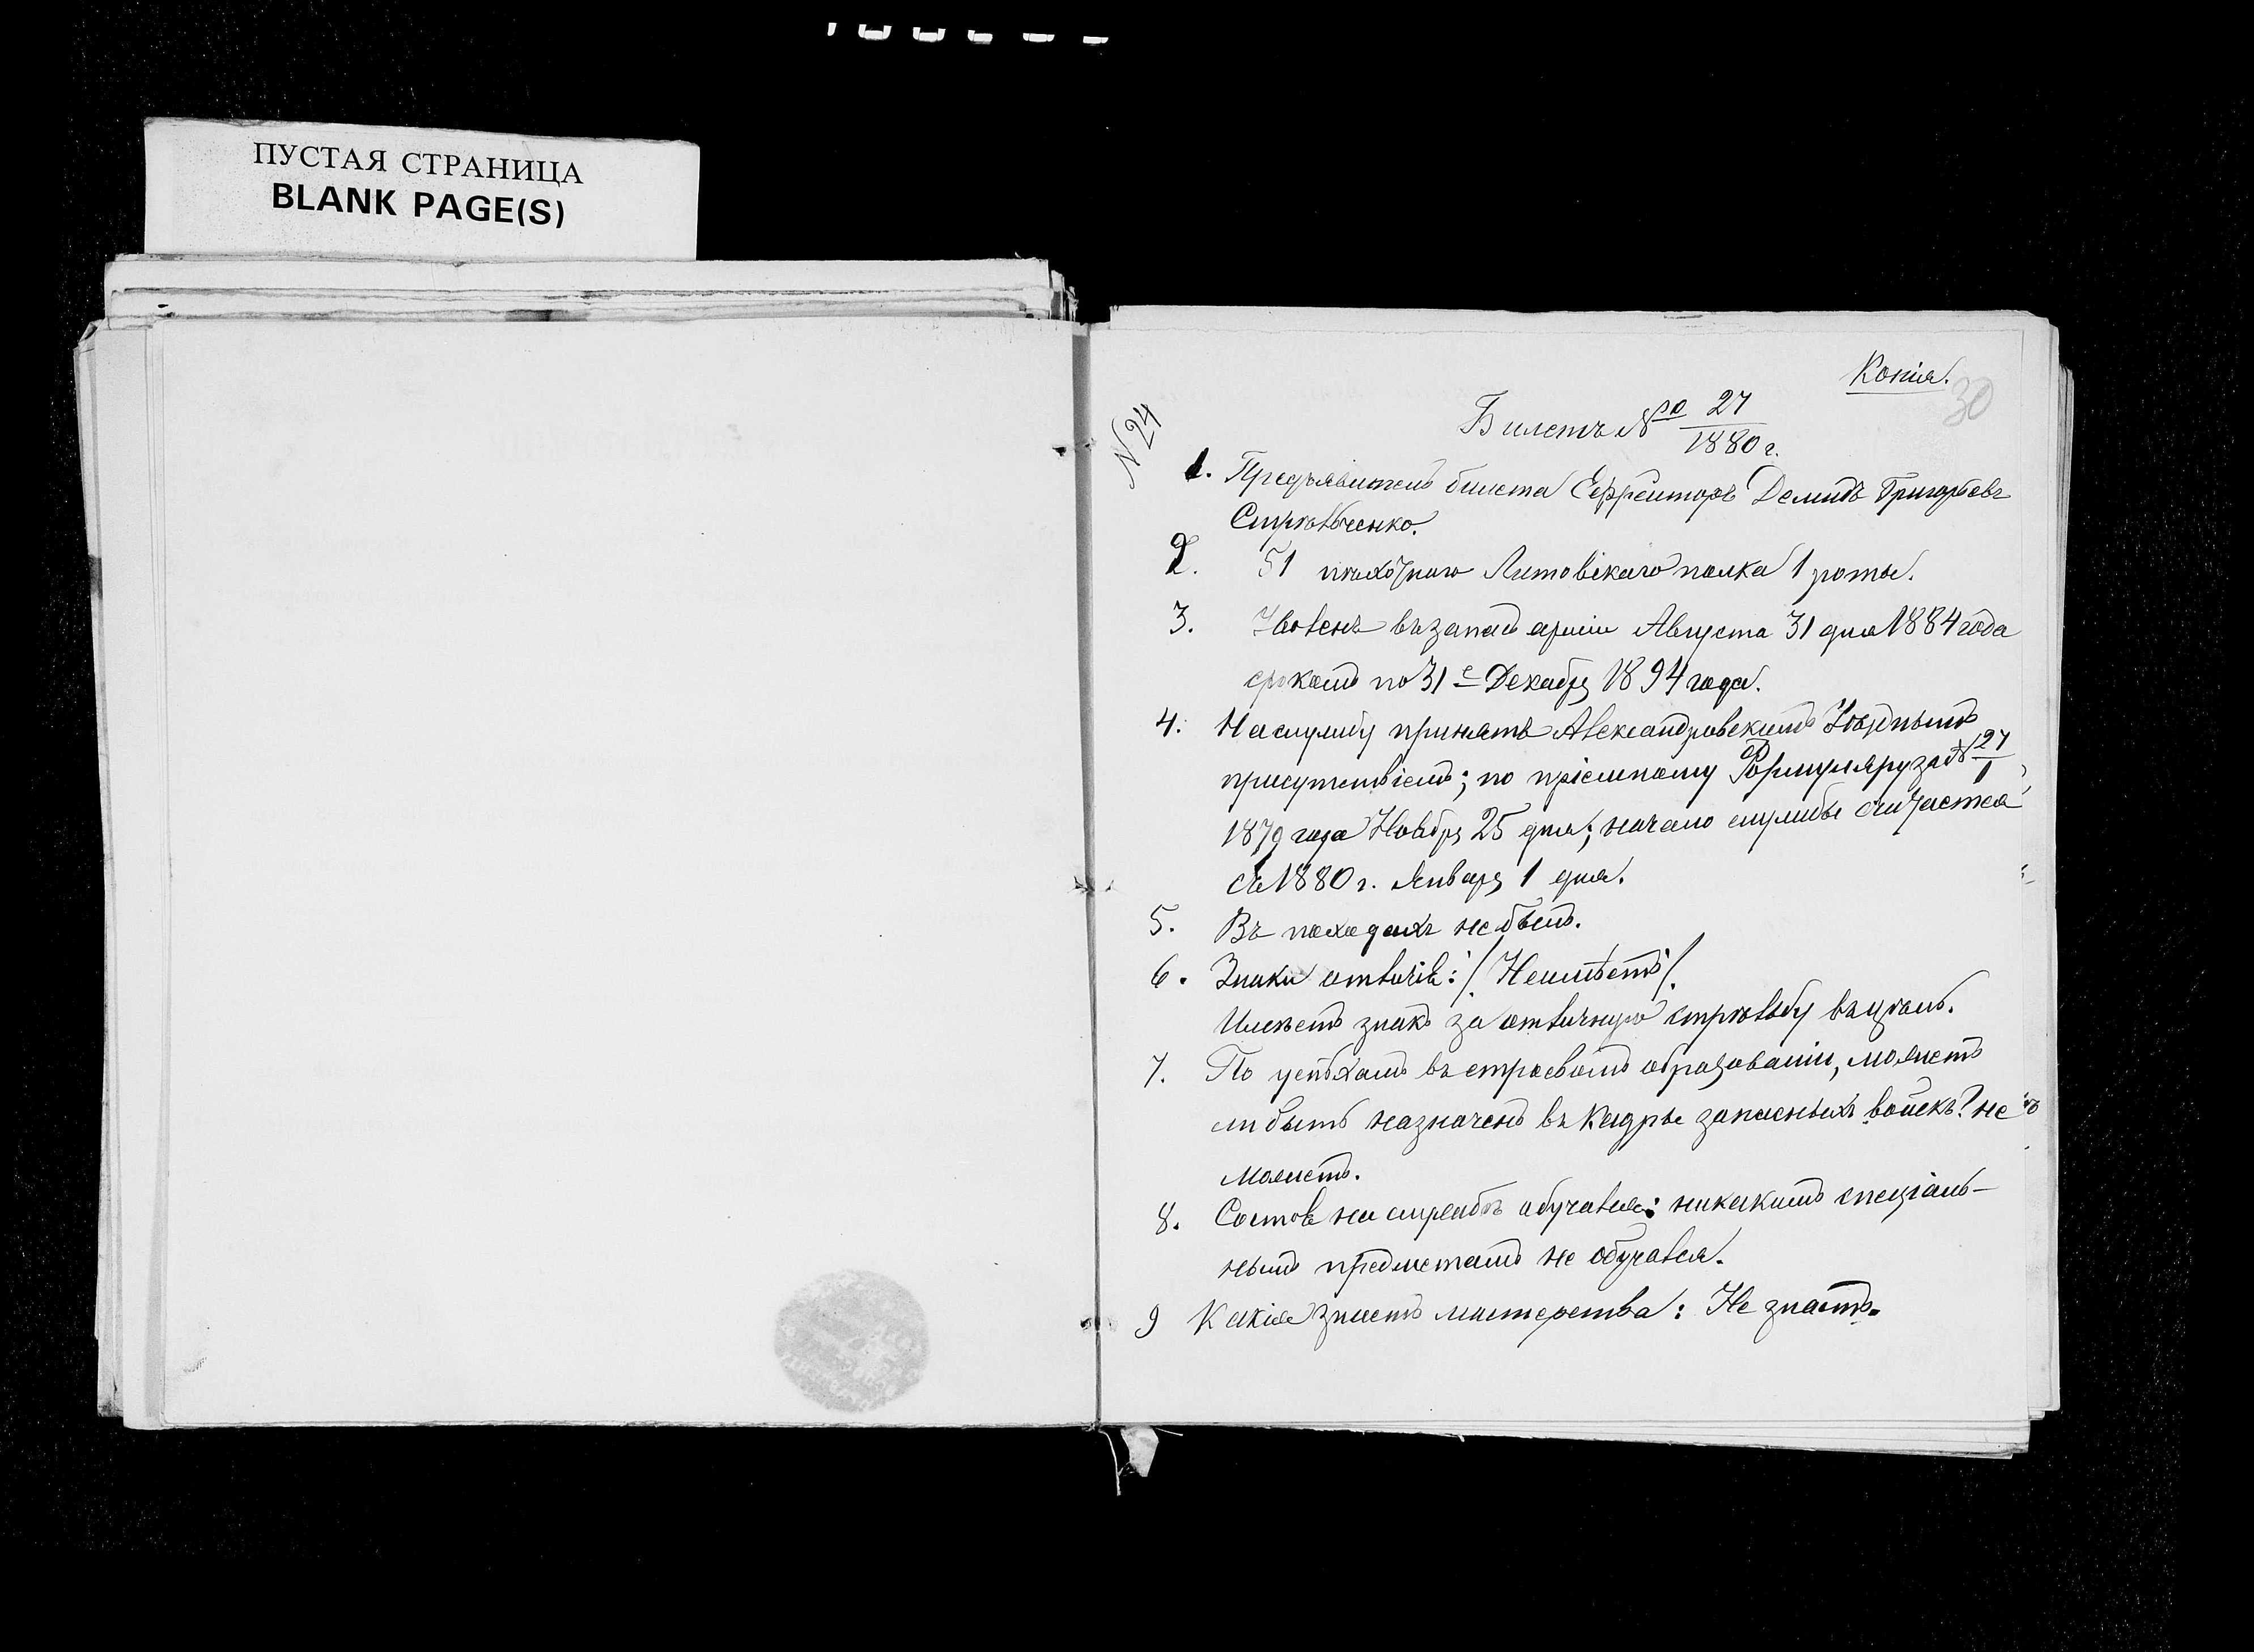 ПУСТАЯ СТРАНИЦА
BLANK PAGE(S)
Копія.
30
N 24
Билетъ № 27/1880 г.
1. Предъявитель билета Ефрейторъ Демидъ Григорьевъ
Стрѣльченко.
2. 51 пѣхотнаго Литовскаго полка 1 роты.
3. Уволенъ въ запасъ арміи Августа 31 дня 1884 года
срокомъ по 31 е Декабря 1894 года.
4. На службу принятъ Александровскимъ Уѣзднымъ
присутствіемъ; по пріемному Формуляру за № 27/1,
1879 года Ноября 25 дня; начало службы считается
съ 1880 г. Января 1 дня.
5. Въ походахъ не былъ.
6. Знаки отличія: /. Не имѣетъ /.
Имѣетъ знакъ за отличную стрѣльбу въ цѣль.
7. По успѣхамъ въ строевомъ образованіи, можетъ
ли быть назначенъ въ кадры запасныхъ войскъ? не
можетъ.
8. Состоя на службѣ обучался: никакимъ спеціаль-
нымъ предметамъ не обучался.
9 Какія знаетъ мастерства: Не знаетъ.